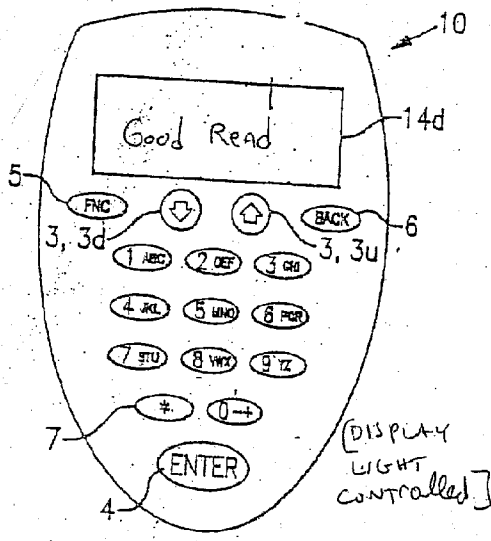 10
Good Read
14d
5
FNC
BACK
6
3, 3d
3, 3u
1 ABC 2 DEF 3 GHI
4 JKL 5 MNO 6 PQR
7 STU 8 VWX 9 YZ
7
* 0-+
ENTER
4
[DISPLAY
LIGHT
controlled]